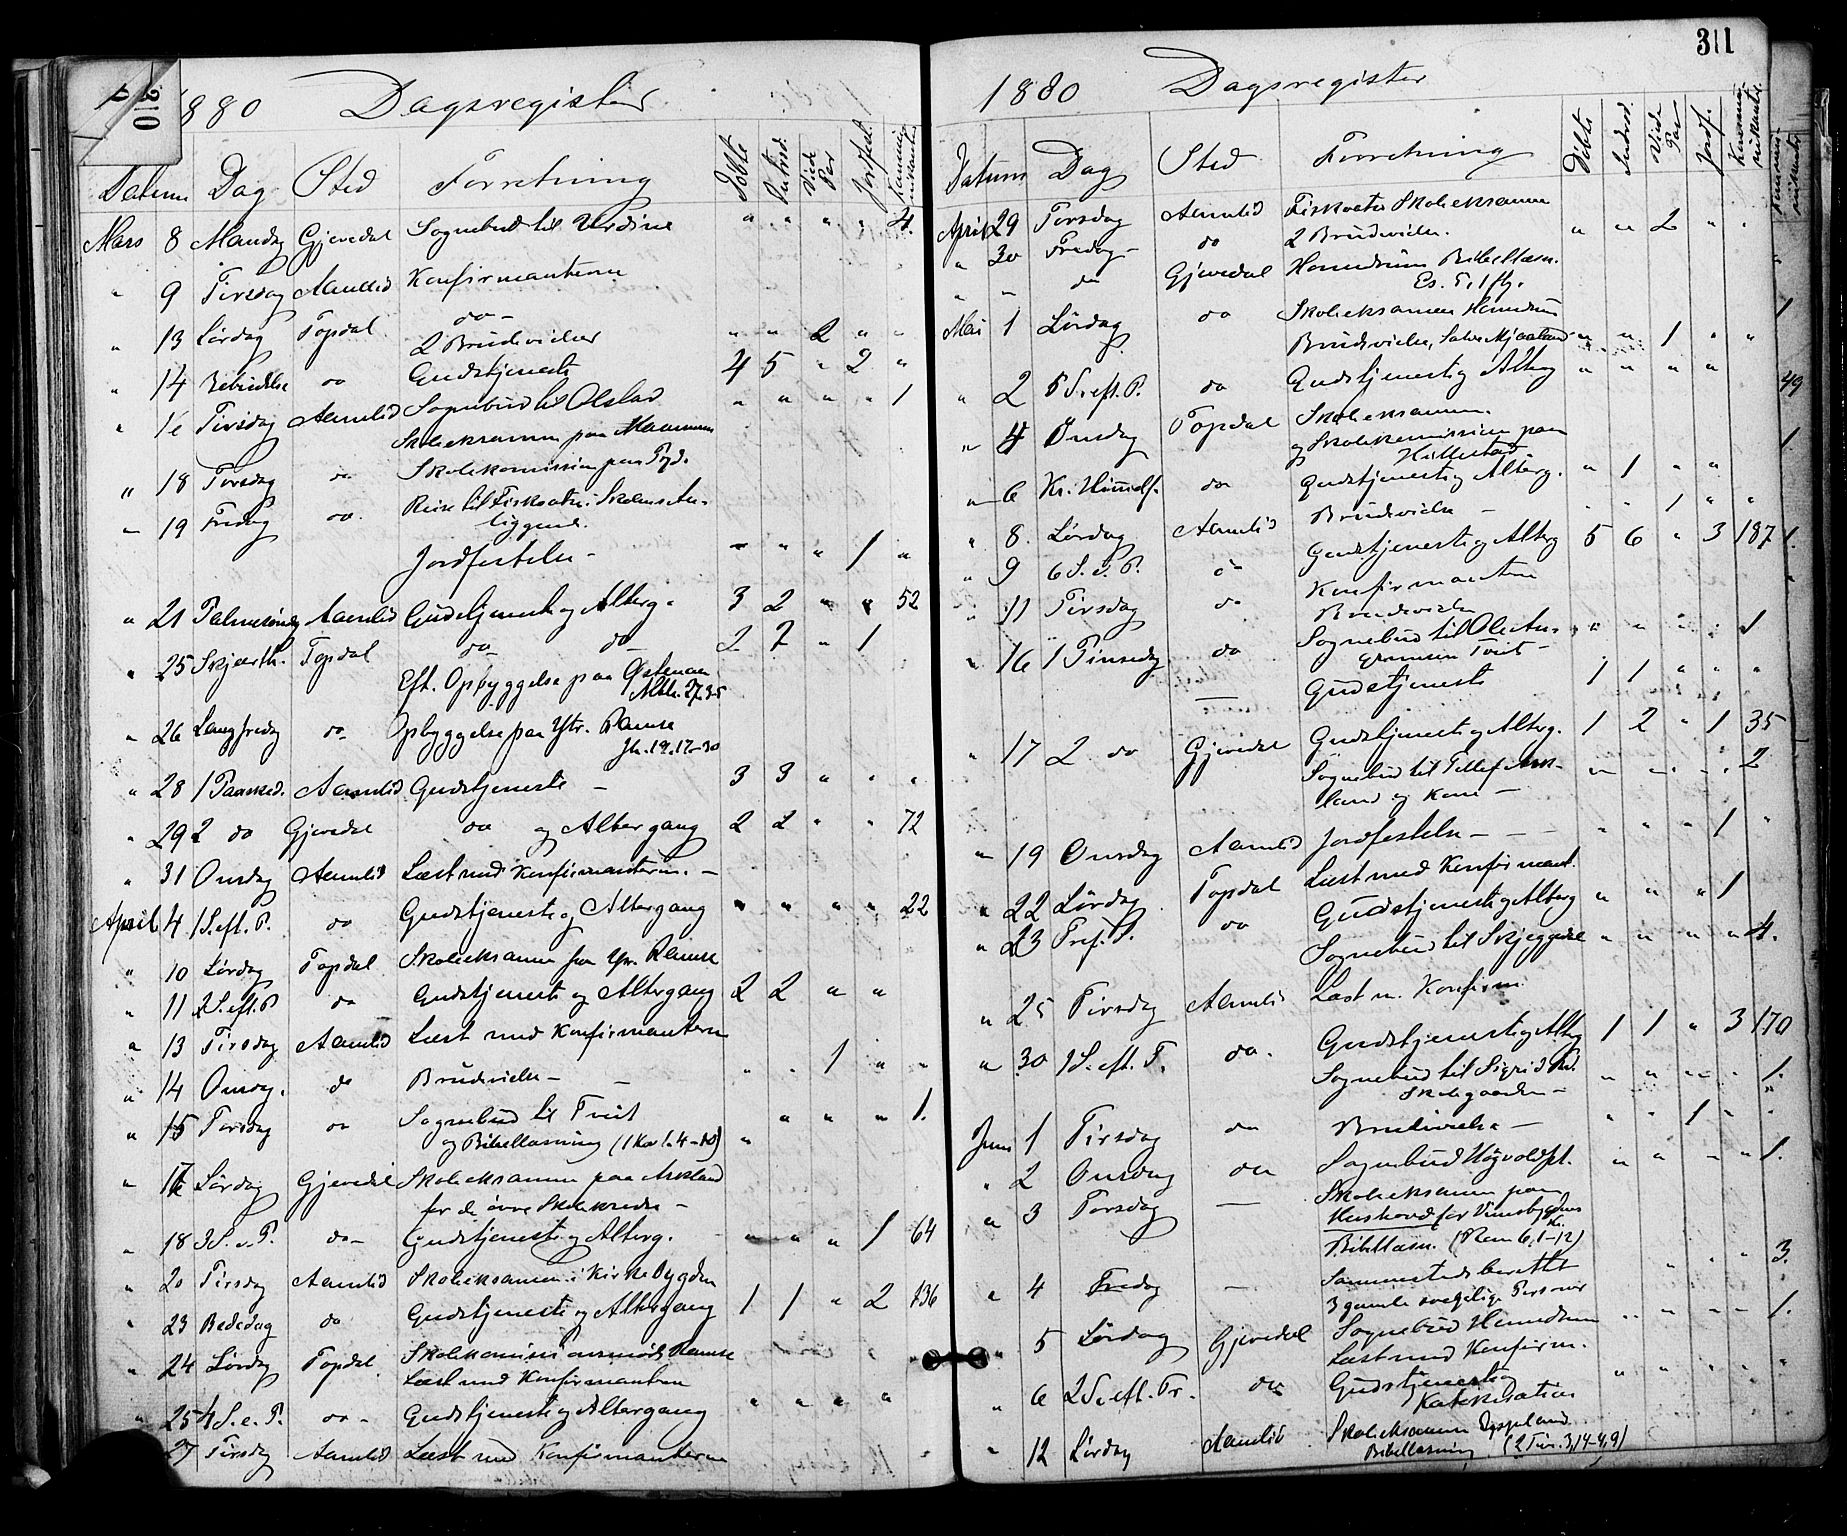 310
1880 Dagsregister
Datum Dag Sted Forretning Døbte Introd. Viede Par Jordfæst. Kommunikanter
Mars 8 Mandag Gjevedal Sognebud til Verdine " " " " 4.
" 9 Tirsdag Aamlid Konfirmanterne
do
" 13 Lørdag Topdal 2 Brudevielser " " 2 " "
" 14 do Gudstjeneste 4 5 " 2 "
" 16 Tirsdag Aamlid Sognebud til Olstad " " " " 1
Skoleeksamen paa
" 18 Torsdag do Skolekomission paa
" 19 Fredag do Reise til Fiskvatn i Skolens An-
liggende.
Jordfestelse - " " " 1 "
" 21 Palmesøndag Aamlid Gudstjeneste og Alterg. 3 2 " " 52
" 25 Skjærth. Topdal do do 2 2 " 1
Eft. Opbyggelse paa Østenaa
Mth. 27.35
" 26 Langfredag do Opbyggelse paa Ytr. Ramse
Jh. 19.17-30
" 28 1 Paasked. Aamlid Gudstjeneste - 3 3 " " "
" 29 2 do Gjevedal do og Altergang 2 2 " " 72
" 31 Onsdag Aamlid Læst med Konfirmanterne. -
April 4 1 S. eft. P. do Gudstjeneste og Altergang " " " " 22
" 10 Lørdag Topdal Skoleeksamen for Yr. Ramse
" 11 2 S. eft. P do Gudstjeneste og Altergang 2 2 " "
" 13 Tirsdag Aamlid Læst med Konfirmanterne
" 14 Onsdag. do Brudevielse - " " 1 " "
" 15 Torsdag do Sognebud til Tveit " " " " 1.
og Bibellæsning (1 Kor 1.4-10)
" 17 Lørdag Gjevedal Skoleeksamen paa Askland
for de øvre Skolekredse -
" 18 3 S. e. P. do - Gudstjeneste og Alterg. " " " 1 64
" 20 Tirsdag Aamlid Skoleeksamen i Kirkebygden
" 23 Bededag do Gudstjeneste og Altergang 1 1 " 2 136
" 24 Lørdag Topdal. Skolekomissionsmøde Ramse
Læst med Konfirmanterne
" 25 4 S. e. P. do - Gudstjeneste og Altergang " " " " "
27 Tirsdag Aamlid Læst med Konfirmanterne
311
1880 Dagsregister
Datum Dag Sted Forretning Døbte Introd. Viede Par Jordf. Kommunikante.
April 29 Torsdag Aamlid Fiskvatn Skoleeksamen
" 30 Fredag - do 2 Brudevielser. " " 2 " "
" " do Gjevedal Homdrum Bibellæsn.
Es. 5,1flg.
Mai 1 Lørdag do Skoleeksamen Homdrum
Brudevielse, Salve Mjaaland " " 1 " "
" 2 5 S. eft. P. do Gudstjeneste og Alterg " " " "
" 4 Onsdag Topdal Skoleeksamen.
og Skolekomission paa
Hillestad.
" 6 Kr. Himmelf. do Gudstjeneste og Alterg. " 1 " "
" 8. Lørdag Aamlid Brudevielse - " " 1 " "
" 9 6 S. e. P. do Gudstjeneste og Alterg 5 6 " 3 187
" 11 Tirsdag do Konfirmanterne
Brudevielse
" 16 1 Pinsedag do Sognebud til Ole " " " " 1
Tveit -
Gudstjeneste 1 1 " " "
" 17 2 do Gjevedal Gudstjeneste og Alterg. 1 2 " 1 35
Sognebud til Tellef Ask- " " " " 2
land og Kone -
" 19 Onsdag Aamlid Jordfestelse - " " " 1 "
" 22 Lørdag Topdal Læst med Konfirmant.
" 23 Tref. S. do Gudstjeneste og Alterg " " " 1
Sognebud til Skjeggedal " " " " 4.
" 25 Tirsdag Aamlid Læst m. Konfirm.
" 30 1 S. eft. T. do. Gudstjeneste og Alterg 1 1 " 3 170
Sognebud til Sigrid " " " " 1.
Skolegaarden -
Juni 1 Tirsdag do Brudevielse - " " 1 " "
" 2 Onsdag do Sognebud Høgvoldpl. " " " " 1.
" 3 Torsdag - Skoleeksamen paa
Huskaas for Vimebygdens Kr.
Bibellæsn. (Rom 6,1-12)
" 4 Fredag - Sammesteds berettet " " " " 3.
3 gamle svagelige Personer
" 5 Lørdag Gjevedal Sognebud Homdrum " " " " 1.
Læst med Konfirm.
" 6 2 S. eft. Tr. do Gudstjeneste og
Katekisation " " " " "
" 12 Lørdag Aamlid Skoleeksamen
Bibellæsning (2 Tim. 3,14-4,9)
Kommunikanter
1
49
1.
1.